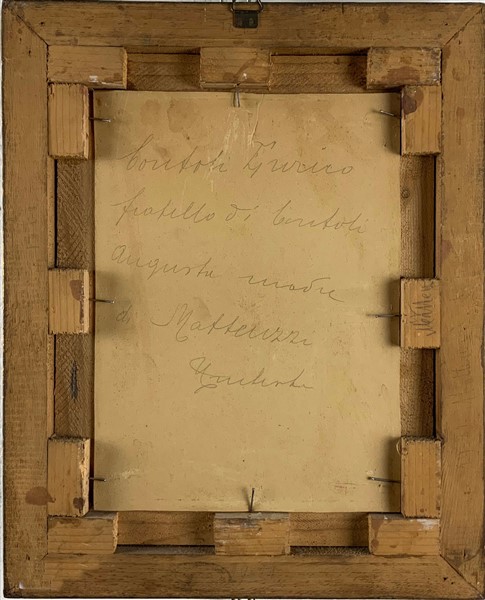 Contoli
fratello di Contoli
Augusta madre
di Matteuzzi
Umberto